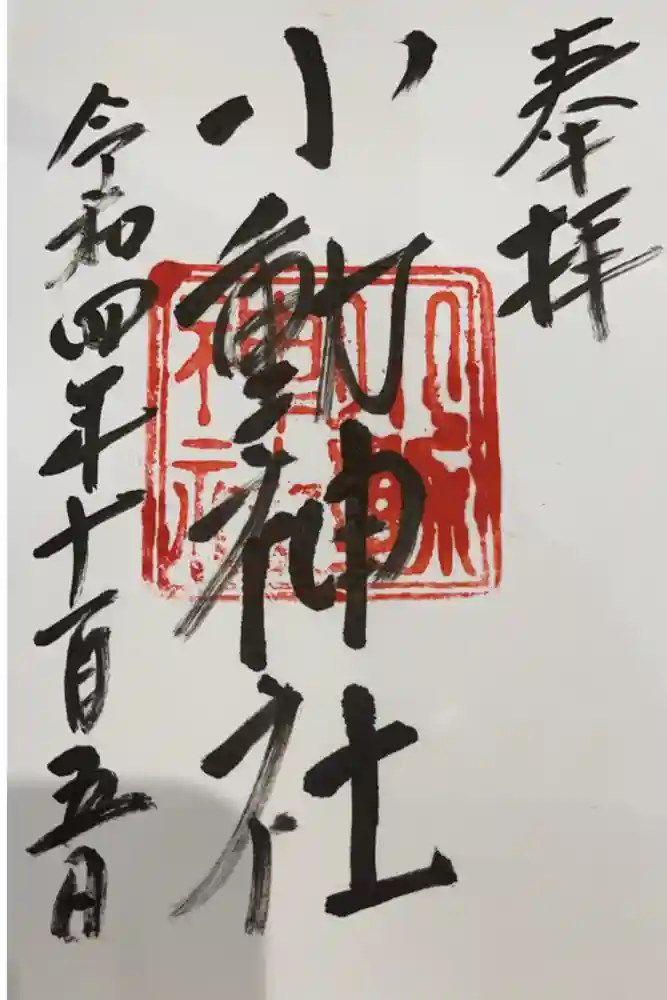 奉拝
小動神社
令和四年十一月五日